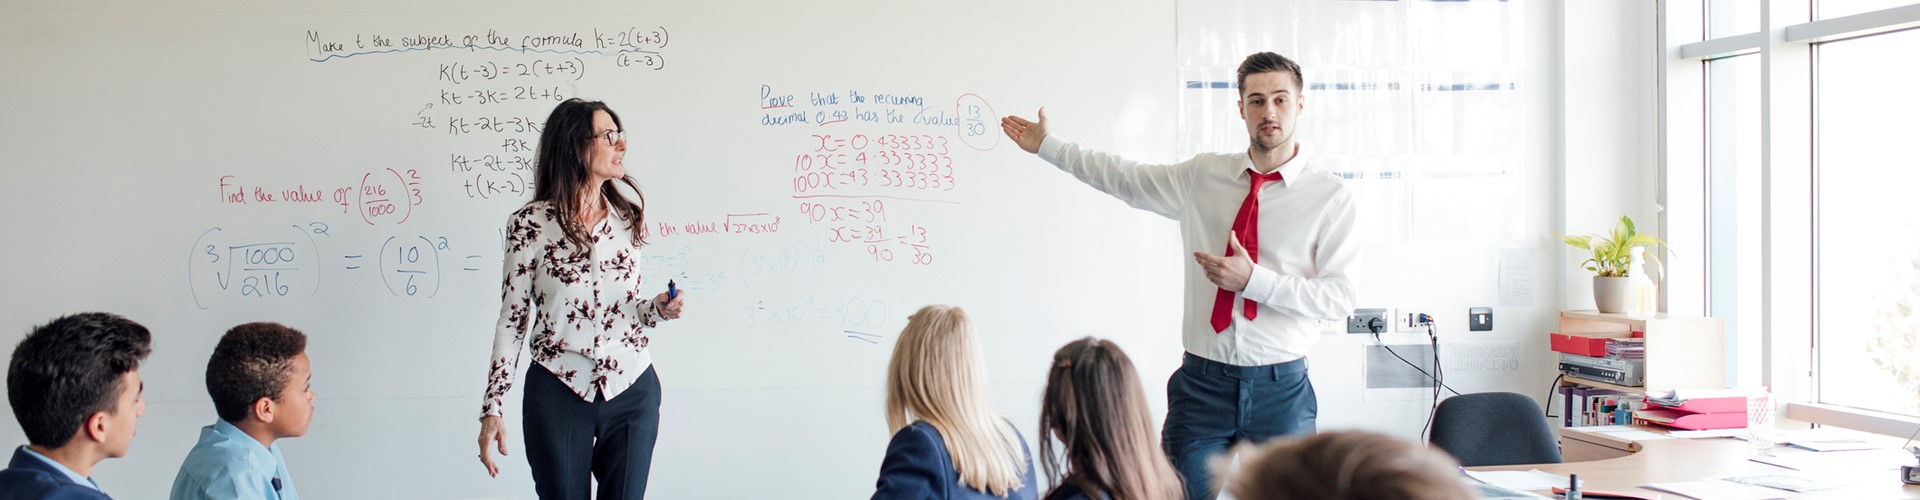 Make t the subject of the formula K=2(t+3)/(t-3)
K(t-3) = 2(t+3)
Kt-3K = 2t+6
-2t Kt-2t-3K
+3K
Kt-2t-3K
t(K-2)=
Find the value of (216/1000)^2/3
(3√1000/216)^2 = (10/6)^2 =
Prove that the recurring
decimal 0.43 has the value 13/30
x=0.433333
10x=4.333333
100x=43.333333
90x=39
x=39/90=13/30
the value √27x3x10^8
300